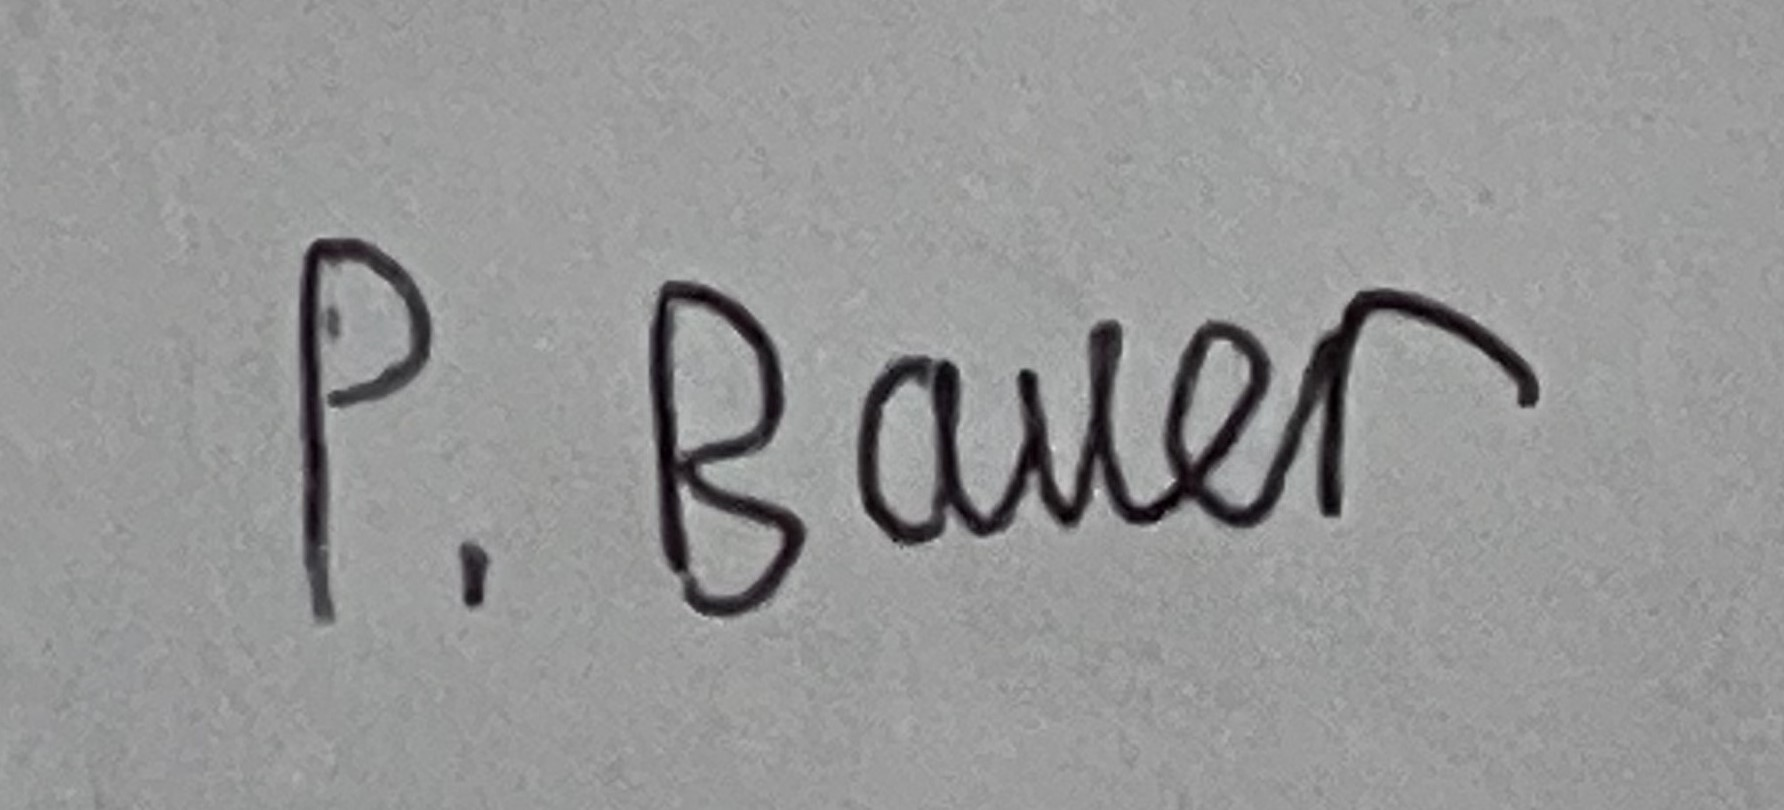 P. Bauer